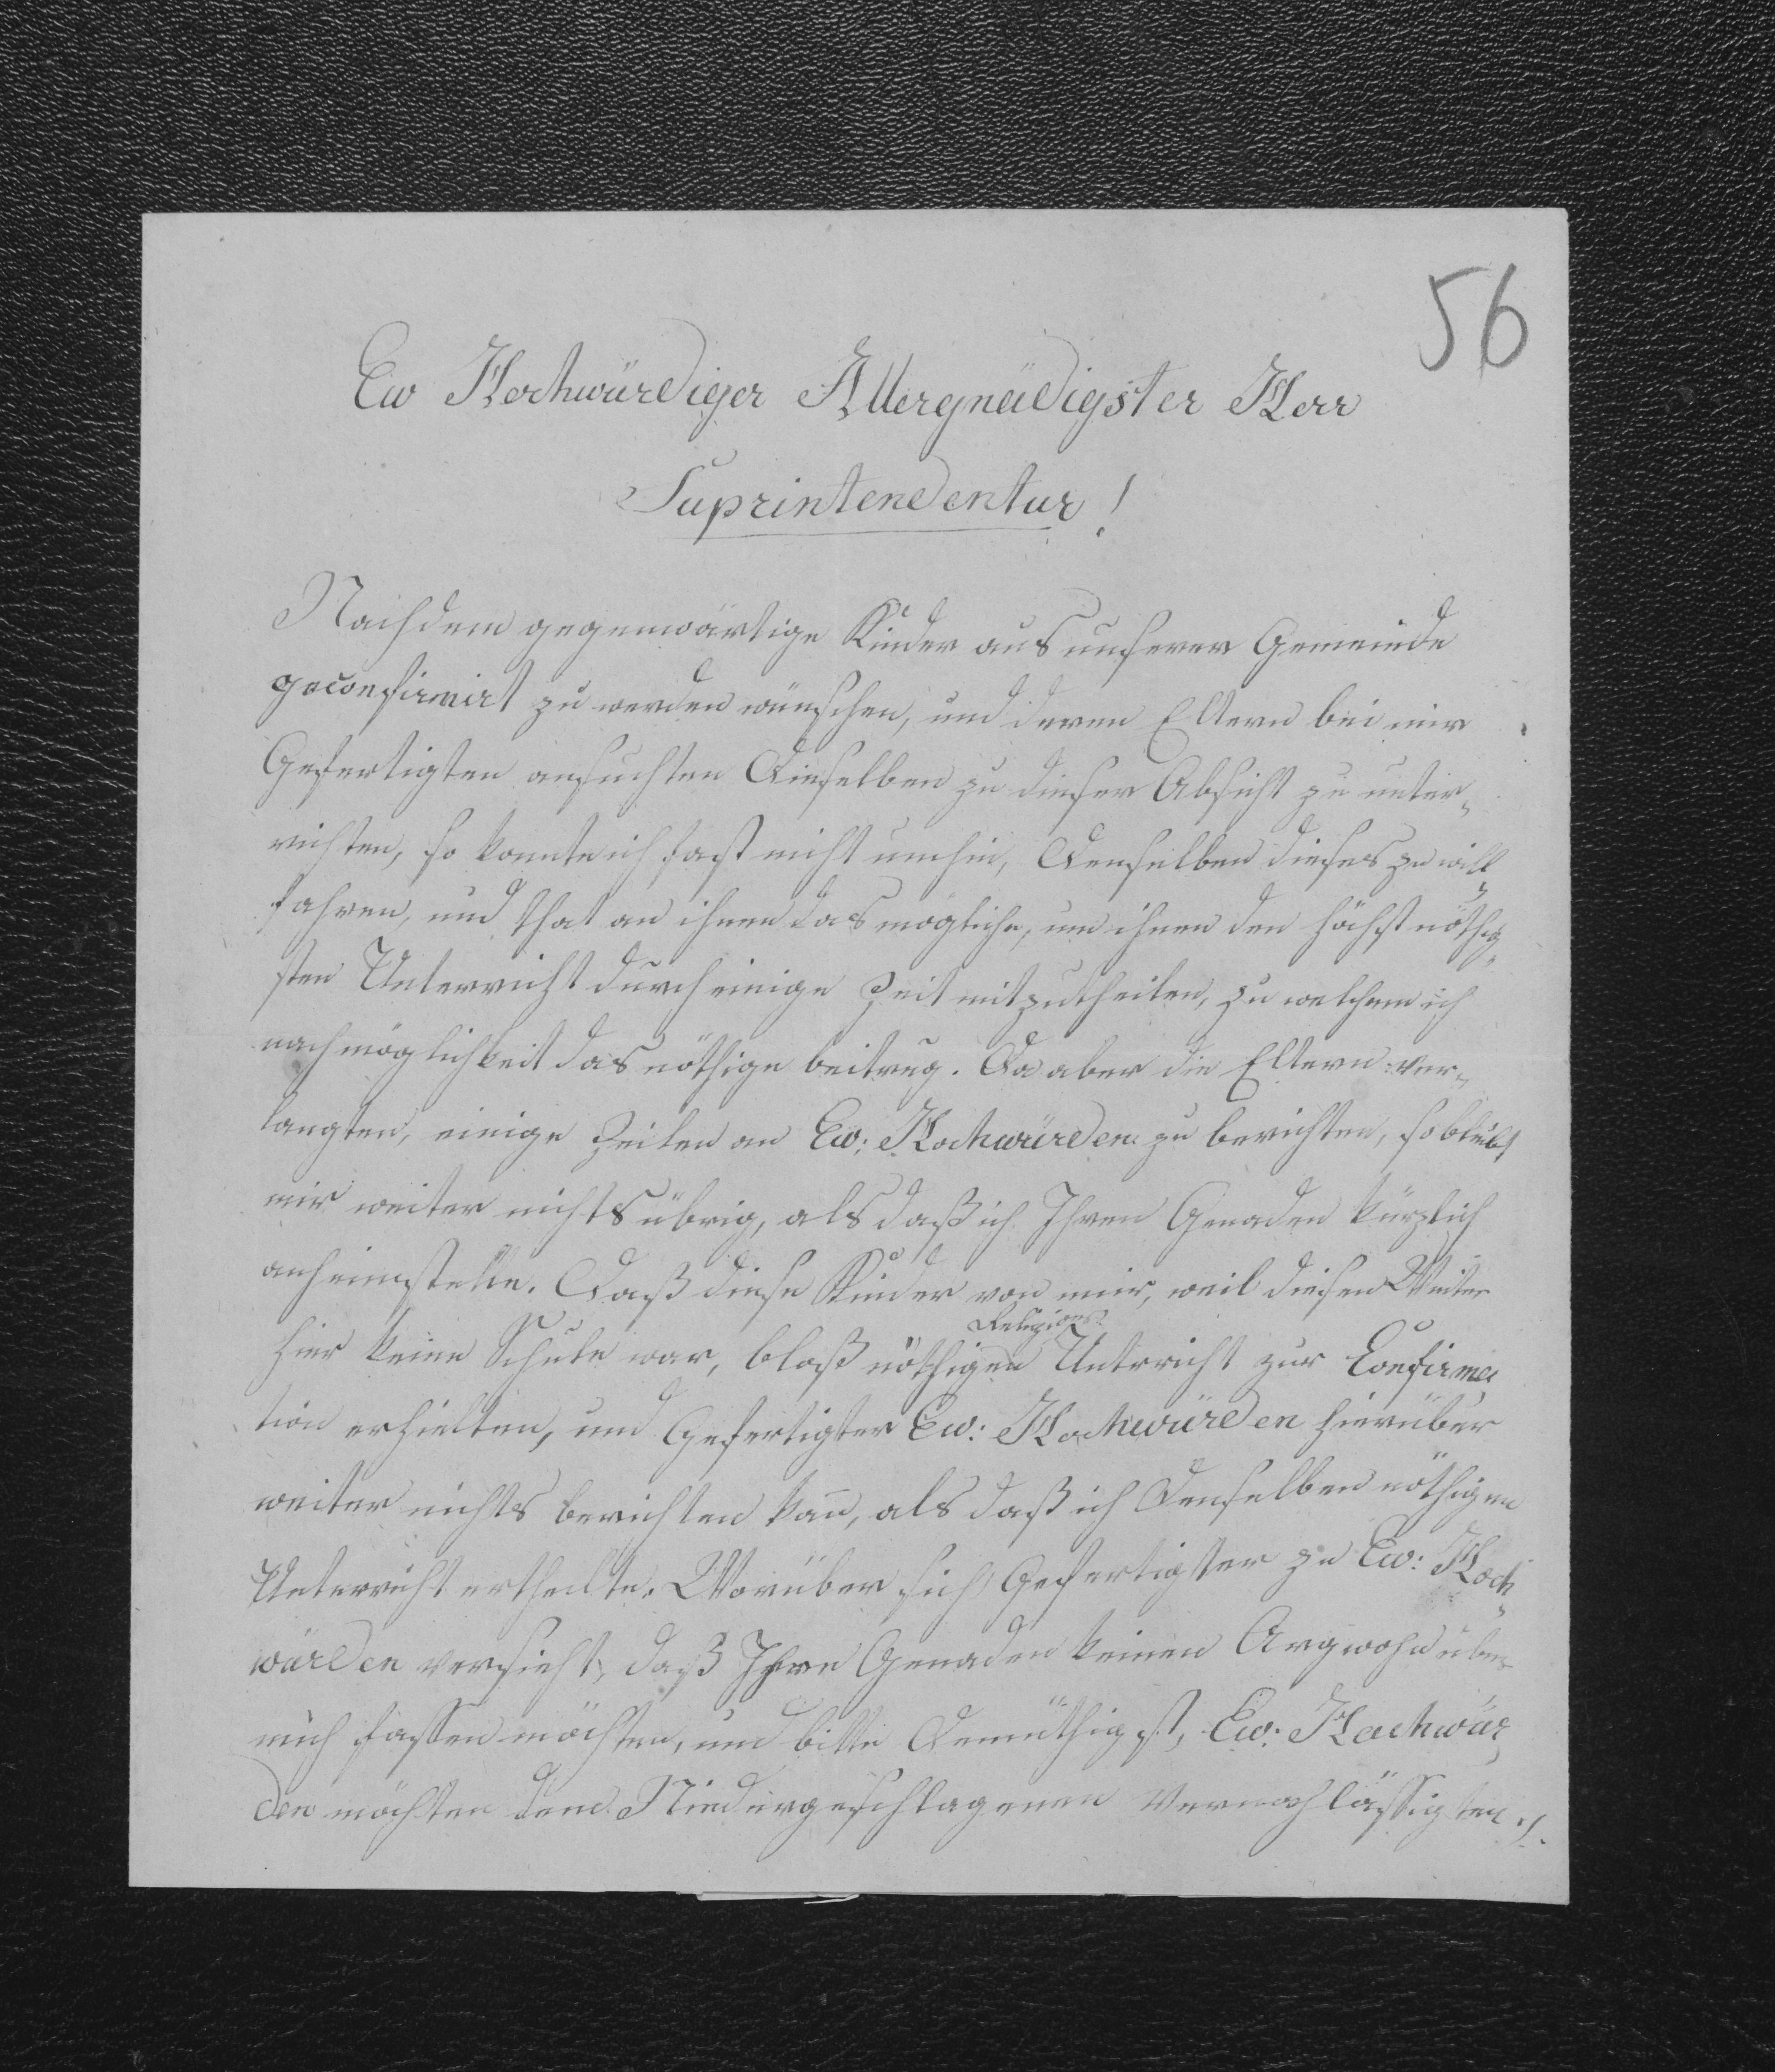 56
Ew Hochwürdiger Allergnädigster Herr
Suprintendentur!
Nachdem gegenwärtige Kinder aus unserer Gemeinde
geconfirmirt zu werden wünschen, und deren Eltern bei mir
Gefertigten ansuchten Dieselben zu dieser Absicht zu unter„
richten, so konnte ich fast nicht umhin, Denselben dieses zu will„
fahren, und that an ihnen das mögliche, um ihnen den höchst nöthig„
sten Unterricht durch einige Zeit mitzutheilen, zu welchem ich
nach möglichkeit das nöthige beitrug. Da aber die Eltern ver„
langten, einige Zeilen an Ew: Hochwürden zu berichten, so bleibt
mir weiter nichts übrig, als daß ich Ihren Genaden kürzlich
anheimstelle. Daß diese Kinder von mir, weil diesen Winter
Religions
hier keine Schule war, bloß nöthigen Untrricht zur Confirma„
tion erhielten, und Gefertigter Ew: Hochwürden hierüber
weiter nichts berichten kañ, als daß ich Denselben nöthigen
Unterricht ertheilte. Worüber sich Gefertigter zu Ew: Hoch„
würden versieht, daß Ihre Genaden keinen Argwohn über
mich fassen möchten, und bitte Demüthigst, Ew: Hochwür„
den möchten dem Niedergeschlagenen Vernachlässigten ./.